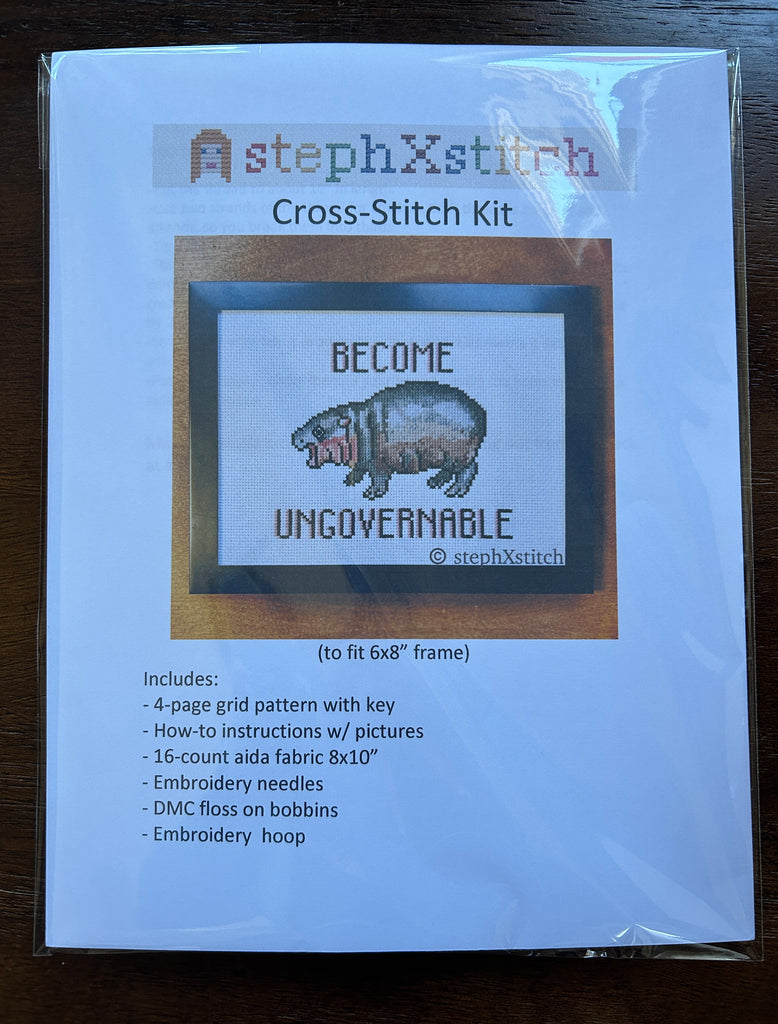 stephXstitch
Cross-Stitch Kit
BECOME
UNGOVERNABLE
© stephXstitch
(to fit 6x8” frame)
Includes:
- 4-page grid pattern with key
- How-to instructions w/ pictures
- 16-count aida fabric 8x10”
- Embroidery needles
- DMC floss on bobbins
- Embroidery hoop